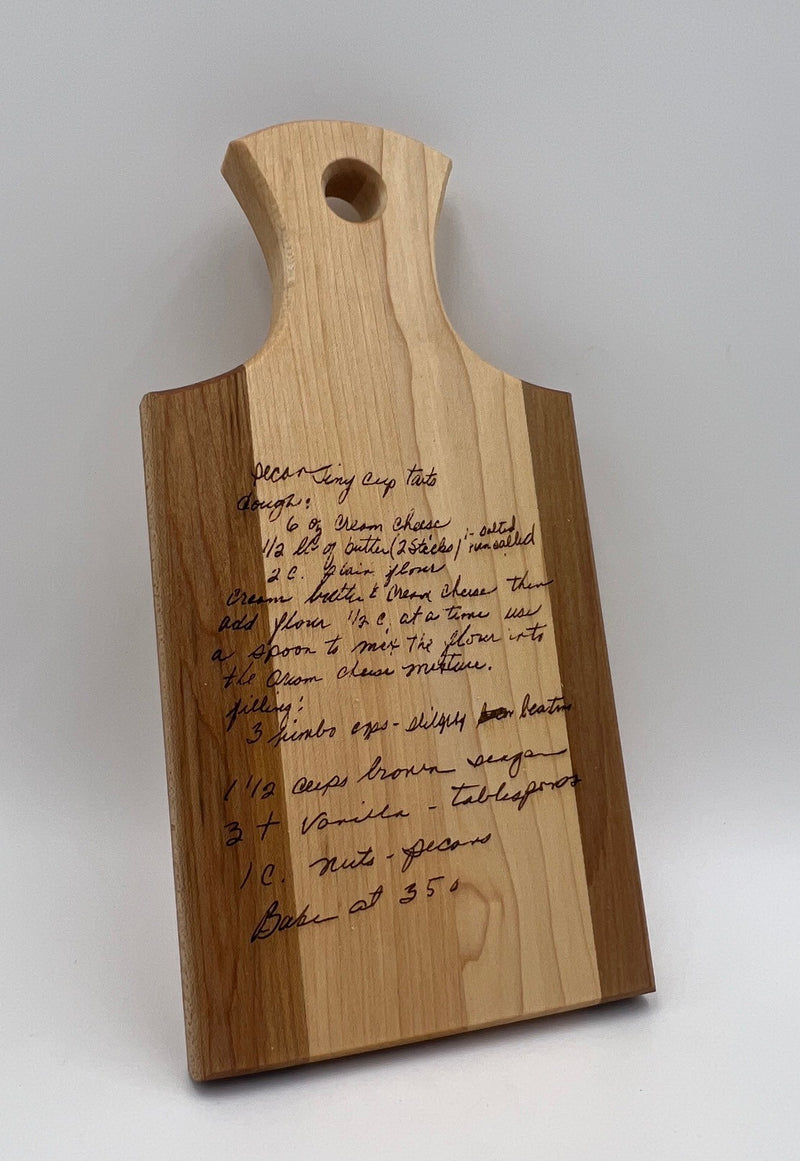 Pecan Tiny Cup Tarts
Dough:
6 oz Cream Cheese
1/2 lb of butter (2 sticks) 1-salted 1-unsalted
2 C. plain flour
Cream butter & cream cheese then
add flour 1/2 C. at a time use
a spoon to mix the flour into
the cream cheese mixture.
filling:
3 jumbo eggs - beaten
1 1/2 cups brown sugar
3 T Vanilla - tablespoons
1 C. nuts - pecans
Bake at 350